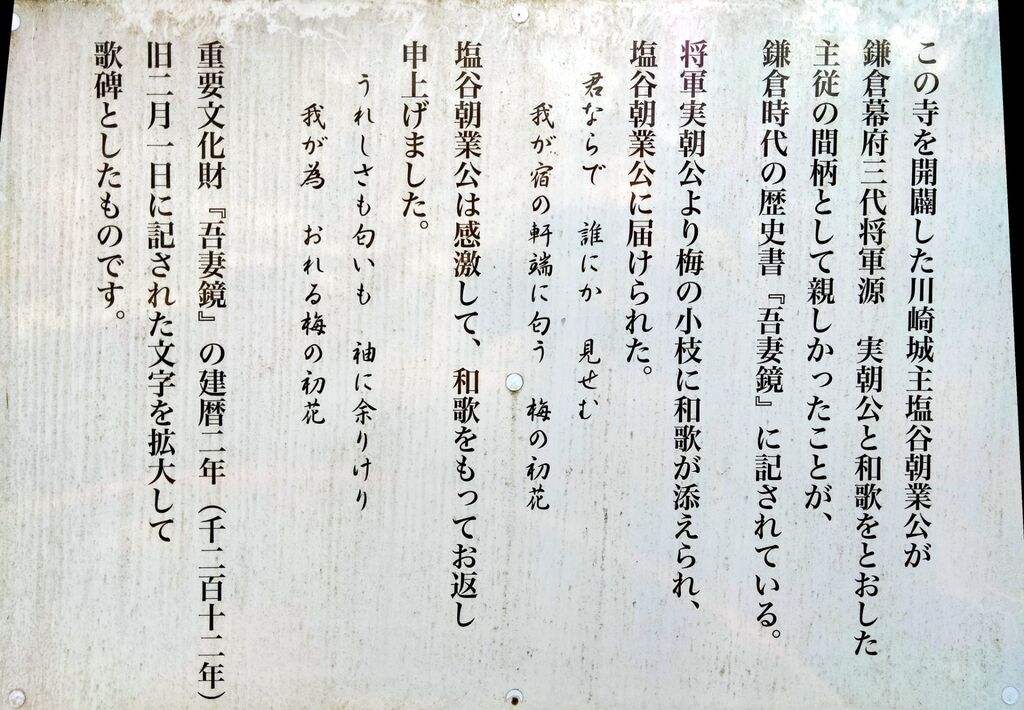 この寺を開闢した川崎城主塩谷朝業公が
鎌倉幕府三代将軍源　実朝公と和歌をとおした
主従の間柄として親しかったことが、
鎌倉時代の歴史書『吾妻鏡』に記されている。
将軍実朝公より梅の小枝に和歌が添えられ、
塩谷朝業公に届けられた。
君ならで　誰にか　見せむ
我が宿の軒端に匂う　梅の初花
塩谷朝業公は感激して、和歌をもってお返し
申上げました。
うれしさも匂いも　袖に余りけり
我が為　おれる梅の初花
重要文化財『吾妻鏡』の建暦二年（千二百十二年）
旧二月一日に記された文字を拡大して
歌碑としたものです。